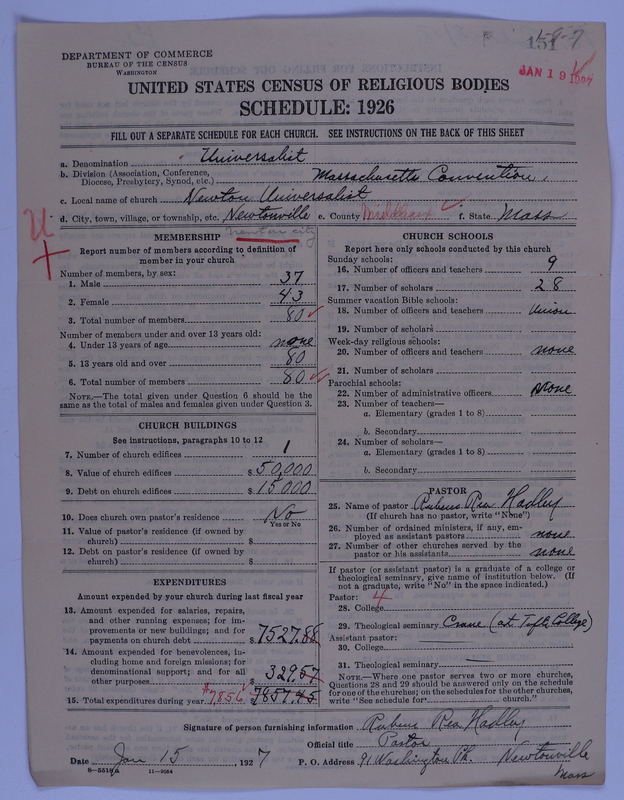 151
JAN 19
DEPARTMENT OF COMMERCE
BUREAU OF THE CENSUS
WASHINGTON
UNITED STATES CENSUS OF RELIGIOUS BODIES
SCHEDULE: 1926
FILL OUT A SEPARATE SCHEDULE FOR EACH CHURCH. SEE INSTRUCTIONS ON THE BACK OF THIS SHEET
a. Denomination Universalist
b. Division (Association, Conference, Diocese, Presbytery, Synod, etc.) Massachusetts Convention.
c. Local name of church Newton Universalist
d. City, town, village, or township, etc. Newtonville e. County Middlesex f. State Mass
newton city
MEMBERSHIP
Report number of members according to definition of
member in your church
Number of members, by sex:
1. Male 37
2. Female 43
3. Total number of members 80
Number of members under and over 13 years old:
4. Under 13 years of age none
5. 13 years old and over 80
6. Total number of members 80
NOTE.—The total given under Question 6 should be the
same as the total of males and females given under Question 3.
CHURCH BUILDINGS
See instructions, paragraphs 10 to 12
7. Number of church edifices 1
8. Value of church edifices $ 50,000
9. Debt on church edifices $ 15000
10. Does church own pastor's residence No
Yes or No
11. Value of pastor's residence (if owned by
church) $
12. Debt on pastor's residence (if owned by
church) $
EXPENDITURES
Amount expended by your church during last fiscal year
13. Amount expended for salaries, repairs,
and other running expenses; for im-
provements or new buildings; and for
payments on church debt $ 7527.88
14. Amount expended for benevolences, in-
cluding home and foreign missions; for
denominational support; and for all
other purposes $ 329.57
15. Total expenditures during year $7856 7857.45
CHURCH SCHOOLS
Report here only schools conducted by this church
Sunday schools:
16. Number of officers and teachers 9
17. Number of scholars 28
Summer vacation Bible schools:
18. Number of officers and teachers Union
19. Number of scholars
Week-day religious schools:
20. Number of officers and teachers none
21. Number of scholars
Parochial schools:
22. Number of administrative officers None
23. Number of teachers—
a. Elementary (grades 1 to 8)
b. Secondary
24. Number of scholars—
a. Elementary (grades 1 to 8)
b. Secondary
PASTOR
25. Name of pastor Rubens Rea Hadley
(If church has no pastor, write "None")
26. Number of ordained ministers, if any, em-
ployed as assistant pastors none
27. Number of other churches served by the
pastor or his assistants none
If pastor (or assistant pastor) is a graduate of a college or
theological seminary, give name of institution below. (If
not a graduate, write "No" in the space indicated.)
Pastor: 4
28. College
29. Theological seminary Crane (at Tufts College)
Assistant pastor:
30. College
31. Theological seminary
NOTE.—Where one pastor serves two or more churches,
Questions 28 and 29 should be answered only on the schedule
for one of the churches; on the schedules for the other churches,
write "See schedule for church."
Signature of person furnishing information Rubens Rea Hadley
Official title Pastor
Date Jan 15, 1927 P. O. Address 91 Washington Pk. Newtonville
Mass
8—5518a 11—9084